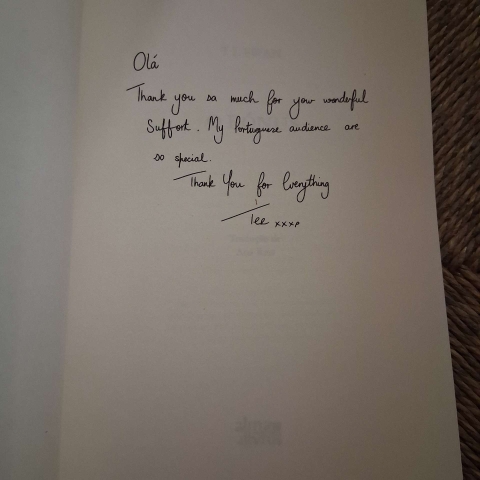 Olá
Thank you so much for your wonderful
Support. My Portuguese audience are
so special.
Thank You for Everything
Lee xxxx